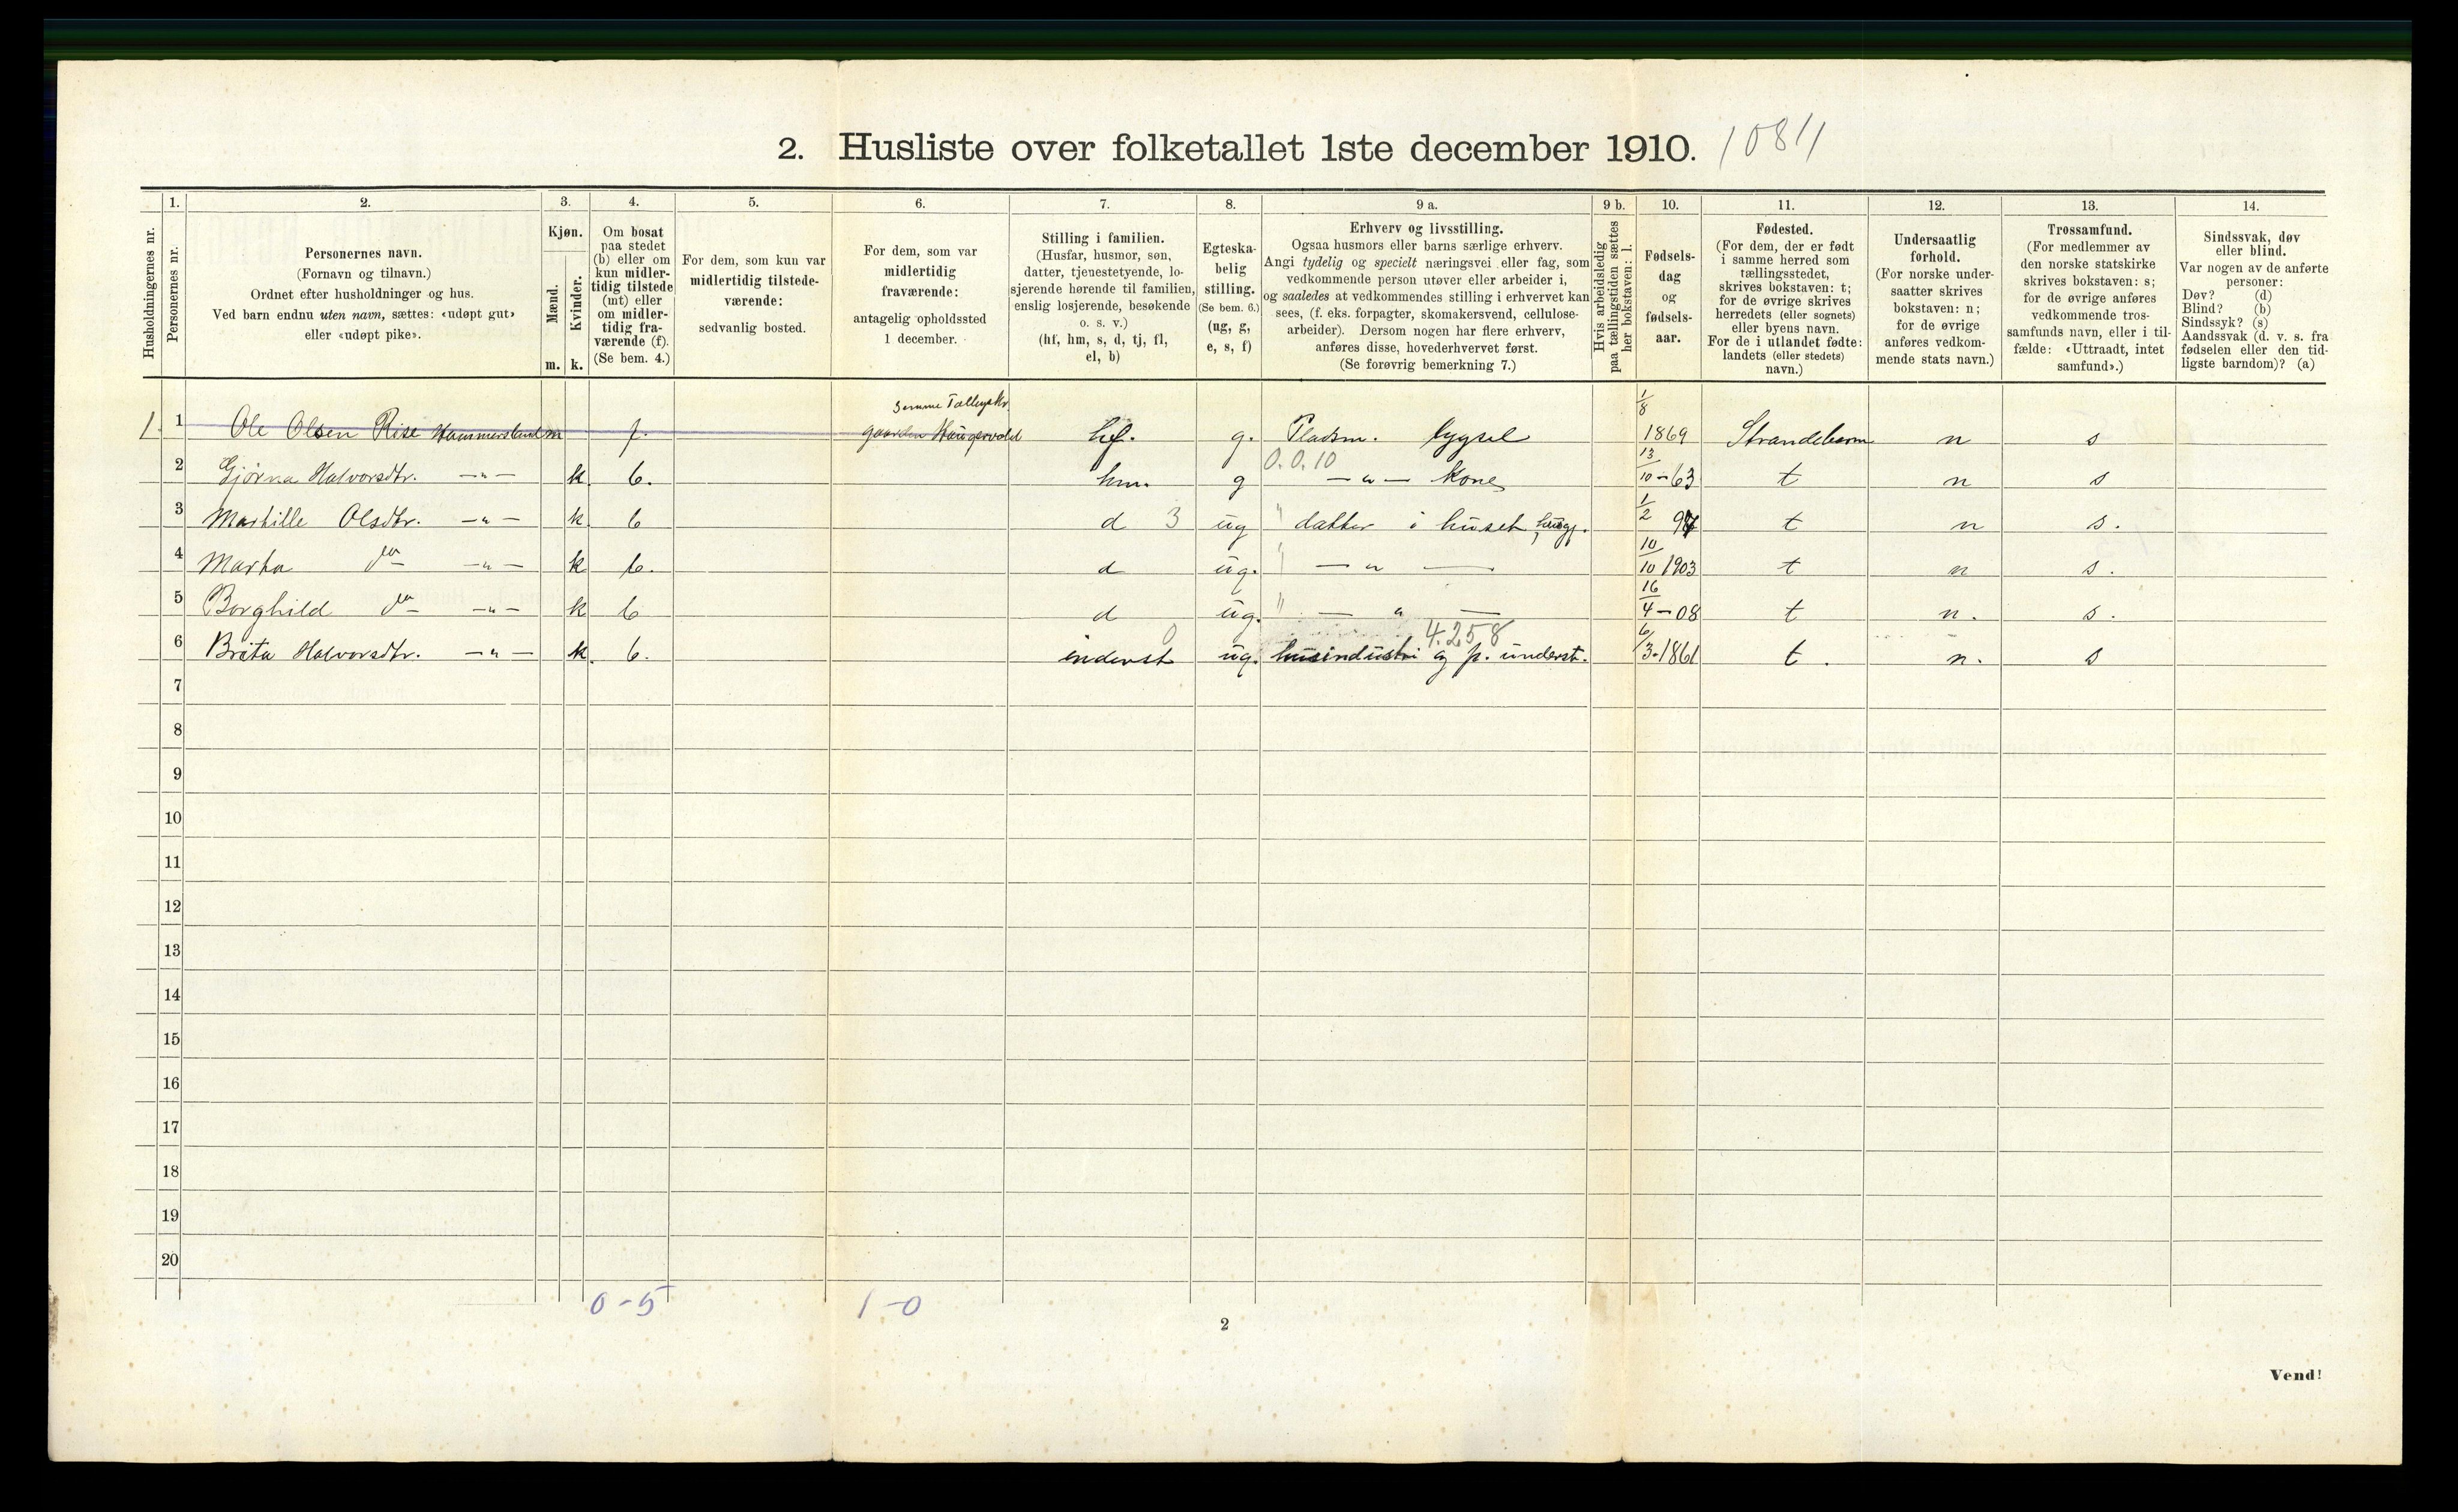 2. Husliste over folketallet 1ste december 1910. 1081
1. 2. 3. 4. 5. 6. 7. 8. 9 a. 9 b. 10. 11. 12. 13. 14.
Husholdningernes nr.
Personernes nr.
Personernes navn.
(Fornavn og tilnavn.)
Ordnet efter husholdninger og hus.
Ved barn endnu uten navn, sættes: «udøpt gut»
eller «udøpt pike».
Kjøn.
Mænd.
Kvinder.
m. k.
Om bosat
paa stedet
(b) eller om
kun midler-
tidig tilstede
(mt) eller
om midler-
tidig fra-
værende (f).
(Se bem. 4.)
For dem, som kun var
midlertidig tilstede-
værende:
sedvanlig bosted.
For dem, som var
midlertidig
fraværende:
antagelig opholdssted
1 december.
Stilling i familien.
(Husfar, husmor, søn,
datter, tjenestetyende, lo-
sjerende hørende til familien,
enslig losjerende, besøkende
o. s. v.)
(hf, hm, s, d, tj, fl,
el, b)
Egteska-
belig
stilling.
(Se bem. 6.)
(ug, g,
e, s, f)
Erhverv og livsstilling.
Ogsaa husmors eller barns særlige erhverv.
Angi tydelig og specielt næringsvei eller fag, som
vedkommende person utøver eller arbeider i,
og saaledes at vedkommendes stilling i erhvervet kan
sees, (f. eks. forpagter, skomakersvend, cellulose-
arbeider). Dersom nogen har flere erhverv,
anføres disse, hovederhvervet først.
(Se forøvrig bemerkning 7.)
Hvis arbeidsledig
paa tællingstiden sættes
her bokstaven: l.
Fødsels-
dag
og
fødsels-
aar.
Fødested.
(For dem, der er født
i samme herred som
tællingsstedet,
skrives bokstaven: t;
for de øvrige skrives
herredets (eller sognets)
eller byens navn.
For de i utlandet fødte:
landets (eller stedets)
navn.)
Undersaatlig
forhold.
(For norske under-
saatter skrives
bokstaven: n;
for de øvrige
anføres vedkom-
mende stats navn.)
Trossamfund.
(For medlemmer av
den norske statskirke
skrives bokstaven: s;
for de øvrige anføres
vedkommende tros-
samfunds navn, eller i til-
fælde: «Uttraadt, intet
samfund».)
Sindssvak, døv
eller blind.
Var nogen av de anførte
personer:
Døv? (d)
Blind? (b)
Sindssyk? (s)
Aandssvak (d. v. s. fra
fødselen eller den tid-
ligste barndom)? (a)
1 1 Ole Olsen Rise Hammersland m f. gaarden hf. g. Pladsm. bygsel 1/8 1869 Strandebarm n s
2 Gjørna Halvorsdtr. —„— k b. hm. g 0.0.10 —„— kone 13/10 - 63 t n s
3 Marhille Olsdtr. —„— k b d 3 ug " datter i huset 1/2 t n s.
4 Marta do —„— k b. d ug. " —„— 10/10 1903 t n s.
5 Borghild do —„— k b d ug. " —„— 16/4 - 08 t n. s.
6 Brita Halvorsdtr. —„— k. b. inderst 0 ug. husindustri og p. underst. 4.258 6/3-1861 t. n. s
7
8
9
10
11
12
13
14
15
16
17
18
19
20
0 - 5 1 - 0
2
Vend!